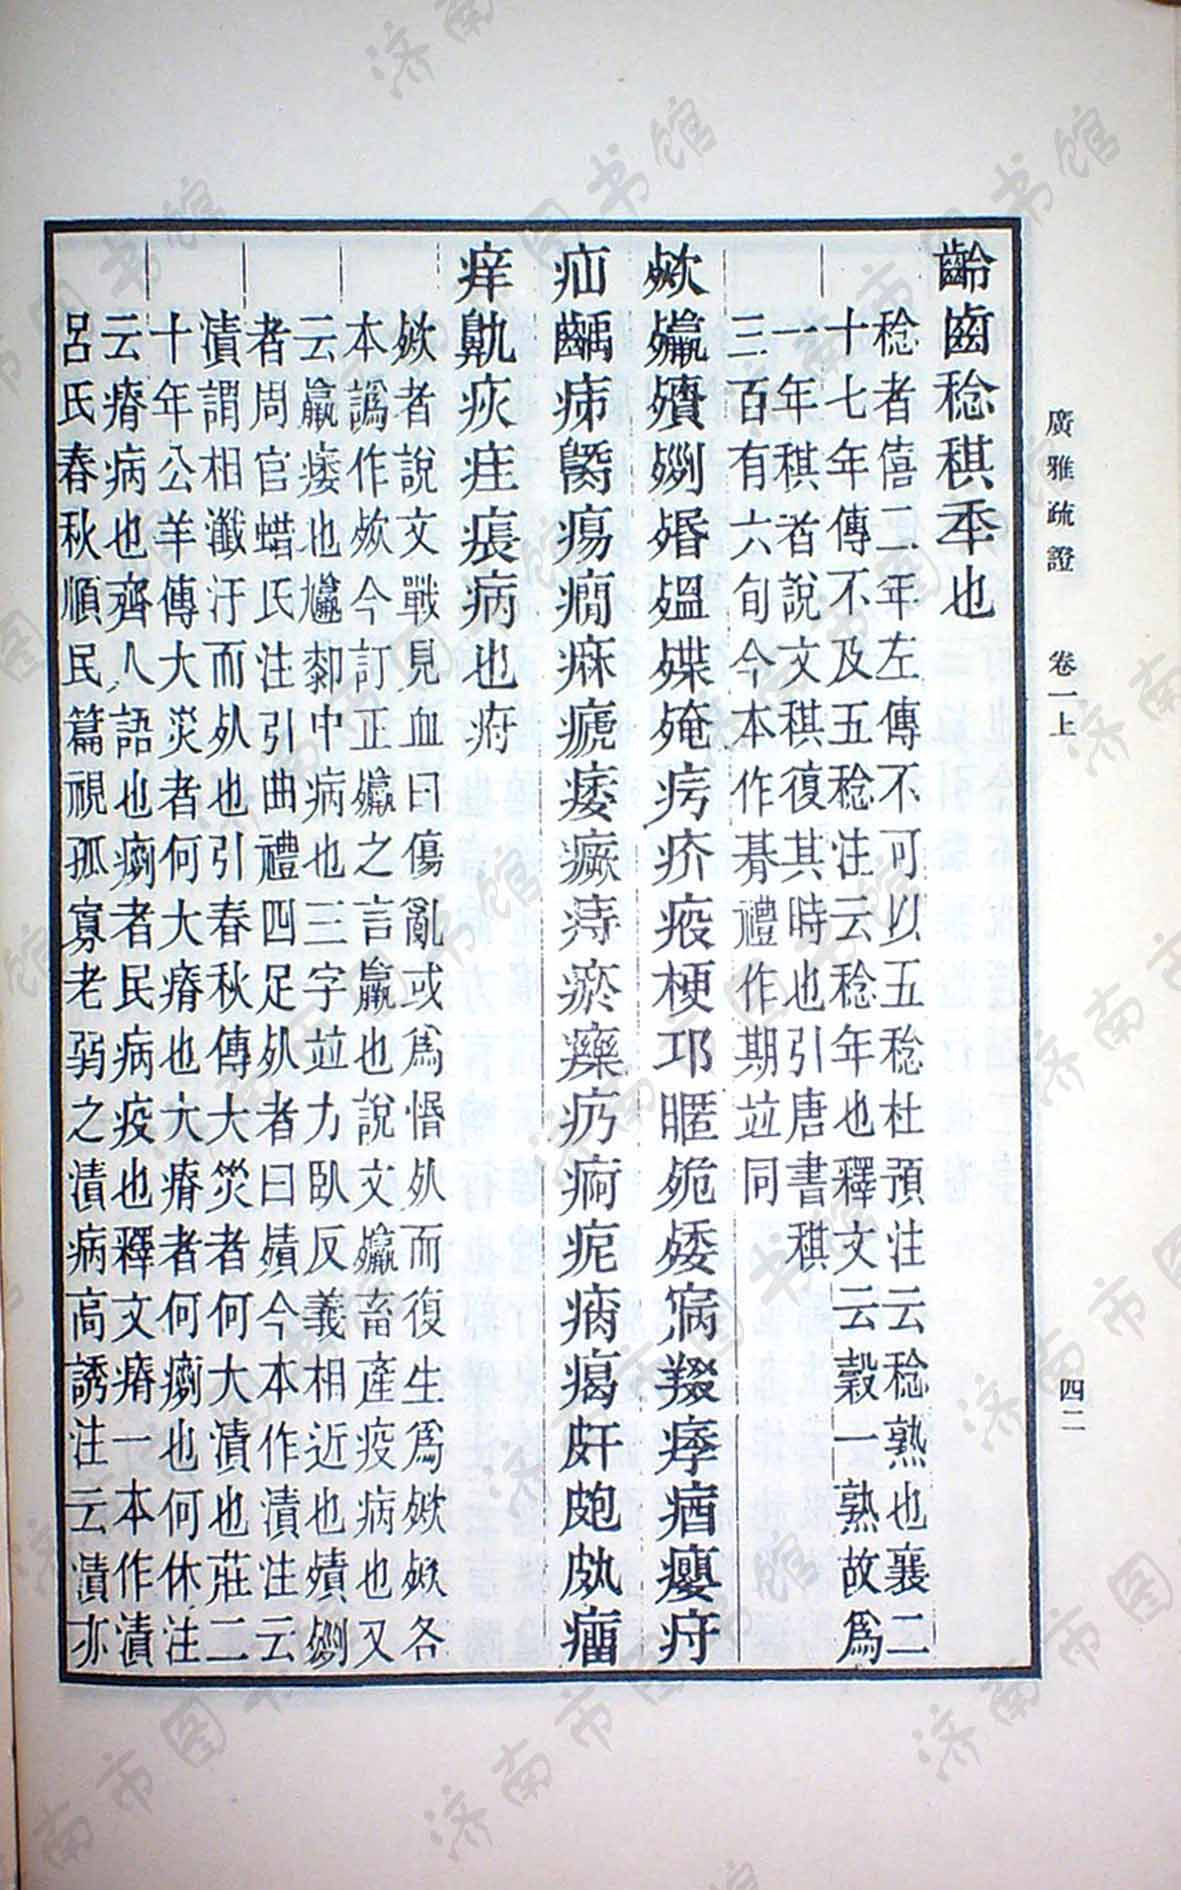 廣雅疏證　卷一上　四二
齡齒稔稘秊也
稔者僖二年左傳不可以五稔杜預注云稔熟也襄二
十七年傳不及五稔注云稔年也釋文云穀一熟故爲
一年稘者說文稘復其時也引唐書稘
三百有六旬今本作朞禮作期竝同
㱎㱻殰㱹殙殟殜殗疞疥疫梗邛㬪㱦㱱㝱𦍴痵㾞癭疛
疝齲㾊鼿瘍癇痳㾷痿瘚痔瘀㿋疓痾痆㾓瘑皯皰㿺瘤
痒鼽疢疰痮病也疛
㱎者說文戰見血曰傷亂或爲惽死而復生爲㱎㱎各
本譌作㱎今訂正㱻之言羸也說文㱻畜產疫病也又
云羸痿也尳㔣中病也三字竝力臥反義相近也殰㱹
者周官蜡氏注引曲禮四足死者曰殰今本作漬注云
漬謂相瀸汙而死也引春秋傳大災者何大漬也莊二
十年公羊傳大災者何大瘠也大瘠者何㾐也何休注
云瘠病也齊人語也㾐者民病疫也釋文瘠一本作漬
呂氏春秋順民篇視孤寡老弱之漬病高誘注云漬亦